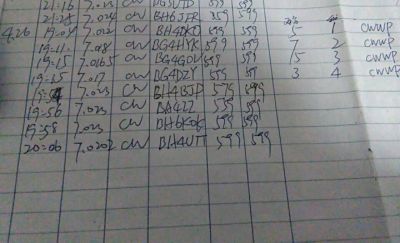 21:16 7.023 CW 599 599
21:28 7.024 CW BH6JFR 559 599
4.26 19:04 7.022 CW 599 599 5 1 CWWP
19:11 7.018 CW BG4HYK 599 599 7 2 CWWP
19:15 7.0165 CW BG4GOV 599 599 15 3 CWWP
19:15 7.017 CW BG4DZY 599 599 3 4 CWWP
7.023 CW BH4BJD 579 599
19:56 7.023 CW BA4ZZ 539 599
19:58 7.023 CW 599 599
20:06 7.0202 CW BH4UTT 599 599